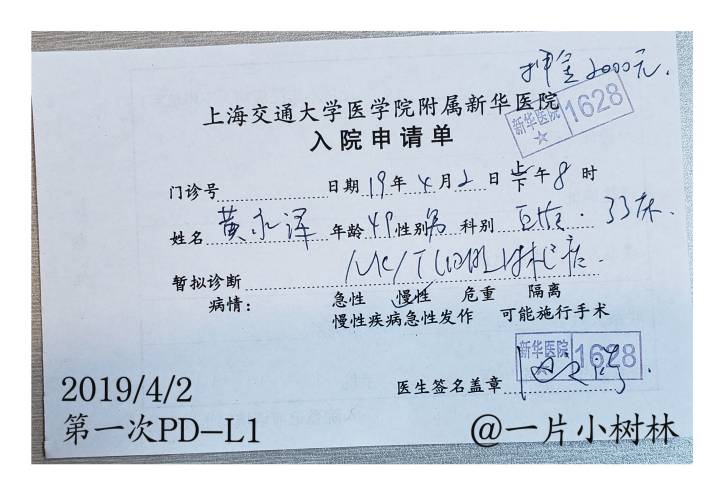 押金2000元.
上海交通大学医学院附属新华医院
新华医院 1628
入院申请单
门诊号 日期 19年 4月 2日 上下午8时
姓名 黄永泽 年龄 49 性别 男 科别 33床.
暂拟诊断 NK/T
病情: 急性 慢性 危重 隔离
慢性疾病急性发作 可能施行手术
新华医院 1628
医生签名盖章
2019/4/2
第一次PD-L1
@一片小树林